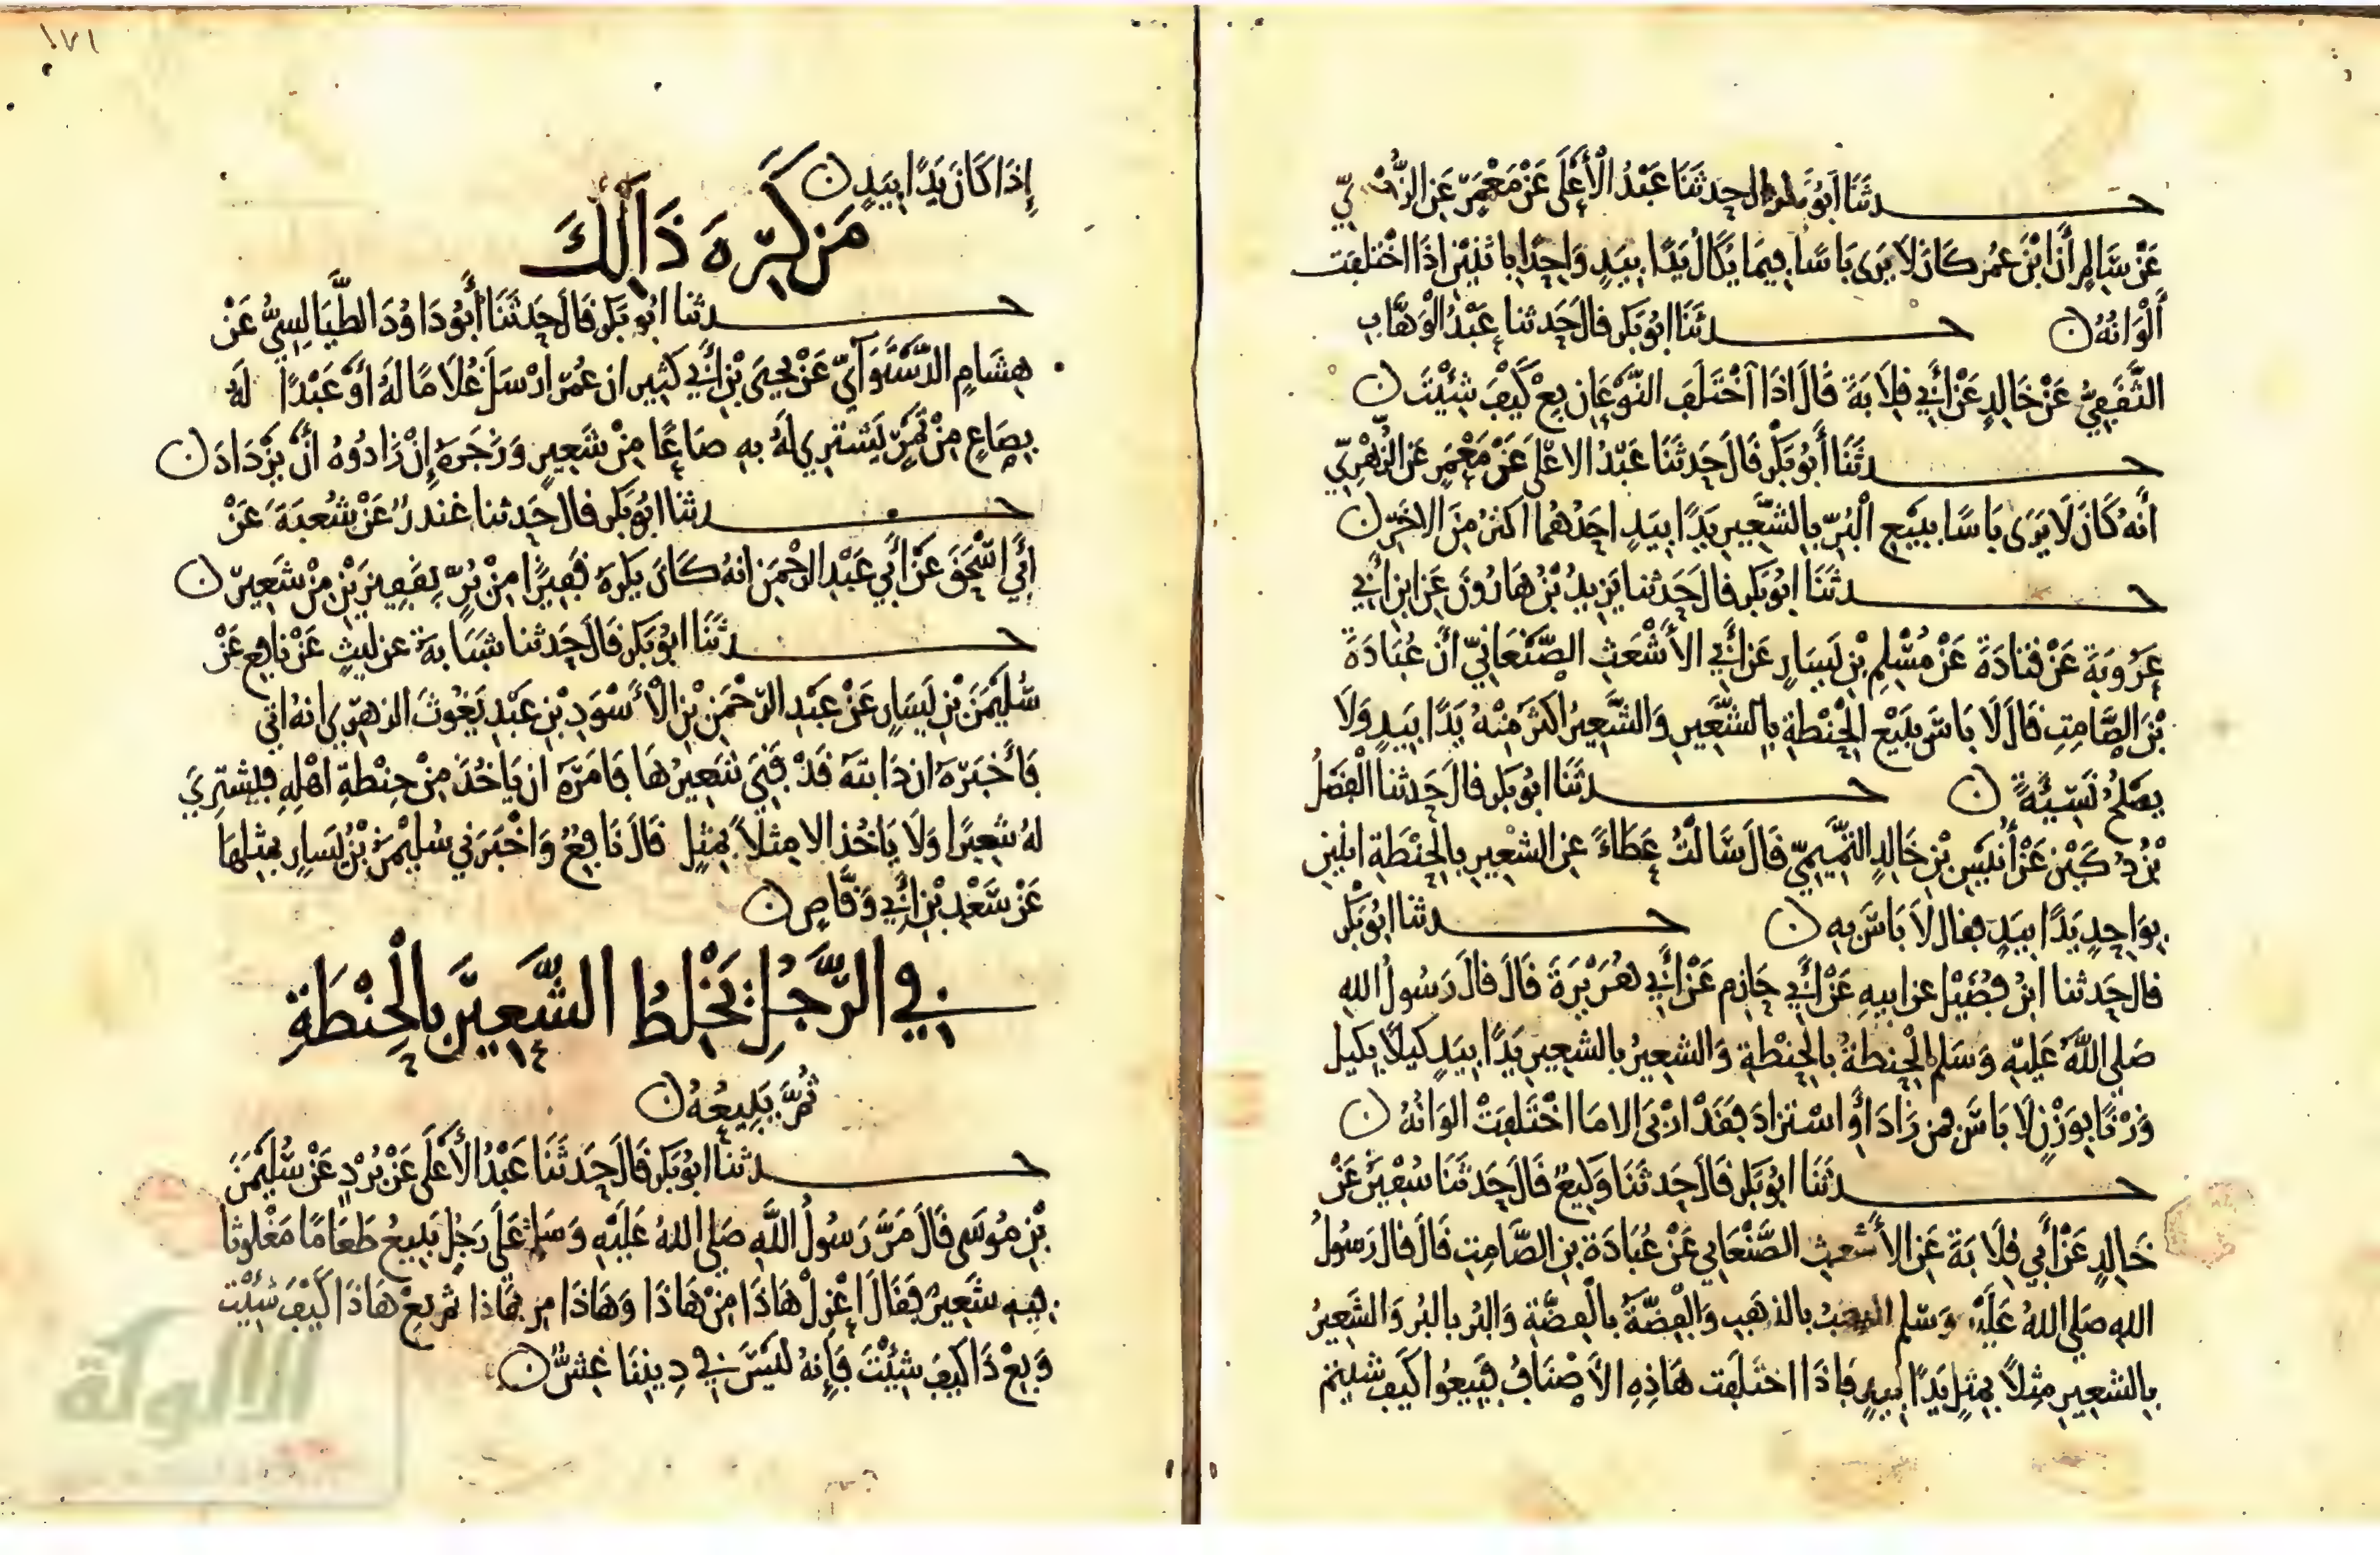 حدثنا أبو بكر قال حدثنا عبد الأعلى عن معمر عن الزهري
عن سالم أن ابن عمر كان لا يرى باسا فيما يكال يدا بيد واحدا باثنين إذا اختلفت
ألوانه ن حدثنا ابو بكر قال حدثنا عبد الوهاب
الثقفي عن خالد عن أبي قلابة قال اذا اختلف النوعان بع كيف شئت ن
حدثنا أبو بكر قال حدثنا عبد الاعلى عن معمر عن الزهري
أنه كان لا يرى باسا ببيع البر بالشعير يدا بيد احدهما اكثر من الاخر ن
حدثنا ابو بكر قال حدثنا يزيد بن هارون عن ابن أبي
عروبة عن قتادة عن مسلم بن يسار عن أبي الأشعث الصنعاني أن عبادة
بن الصامت قال لا باس ببيع الحنطة بالشعير والشعير اكثر منه يدا بيد ولا
يصلح نسيئة ن حدثنا ابو بكر قال حدثنا الفضل
بن دكين عن أنيس بن خالد التميمي قال سالت عطاء عن الشعير بالحنطة اثنين
بواحد يدا بيد فقال لا باس به ن حدثنا ابو بكر
قال حدثنا ابن فضيل عن ابيه عن أبي حازم عن أبي هريرة قال قال رسول الله
صلى الله عليه وسلم الحنطة بالحنطة والشعير بالشعير يدا بيد كيلا بكيل
وزنا بوزن لا باس فمن زاد أو استزاد فقد اربى الا ما اختلفت الوانه ن
حدثنا ابو بكر قال حدثنا وكيع قال حدثنا سفين عن
خالد عن أبي قلابة عن الأشعث الصنعاني عن عبادة بن الصامت قال قال رسول
الله صلى الله عليه وسلم الذهب بالذهب والفضة بالفضة والبر بالبر والشعير
بالشعير مثلا بمثل يدا بيد فاذا اختلفت هاذه الأصناف فبيعوا كيف شئتم
١٧١
إذا كان يدا بيد ن
من كره ذالك
حدثنا ابو بكر قال حدثنا أبو داود الطيالسي عن
هشام الدستوآئي عن يحيى بن أبي كثير ان عمر ارسل غلاما له أو عبدا له
بصاع من تمر ليشتري له به صاعا من شعير وزجره إن زادوه أن يزداد ن
حدثنا ابو بكر قال حدثنا غندر عن شعبة عن
أبي اسحق عن أبي عبد الرحمن انه كان يكره قفيزا من بر بقفيزين من شعير ن
حدثنا ابو بكر قال حدثنا شبابة عن ليث عن نافع عن
سليمن بن يسار عن عبد الرحمن بن الأسود بن عبد يغوث الزهري انه اتي
فأخبره ان دابته قد فني شعيرها فامره ان ياخذ من حنطة اهله فليشتري
له شعيرا ولا ياخذ الا مثلا بمثل قال نافع واخبرني سليمن بن يسار بمثلها
عن سعد بن أبي وقاص ن
في الرجل يخلط الشعير بالحنطة
ثم يبيعه ن
حدثنا ابو بكر قال حدثنا عبد الأعلى عن برد عن سليمن
بن موسى قال مر رسول الله صلى الله عليه وسلم على رجل يبيع طعاما مغلوثا
فيه شعير فقال اعزل هاذا من هاذا وهاذا من هاذا ثم بع هاذا كيف شئت
وبع ذا كيف شئت فإنه ليس في ديننا غش ن
الألوكة